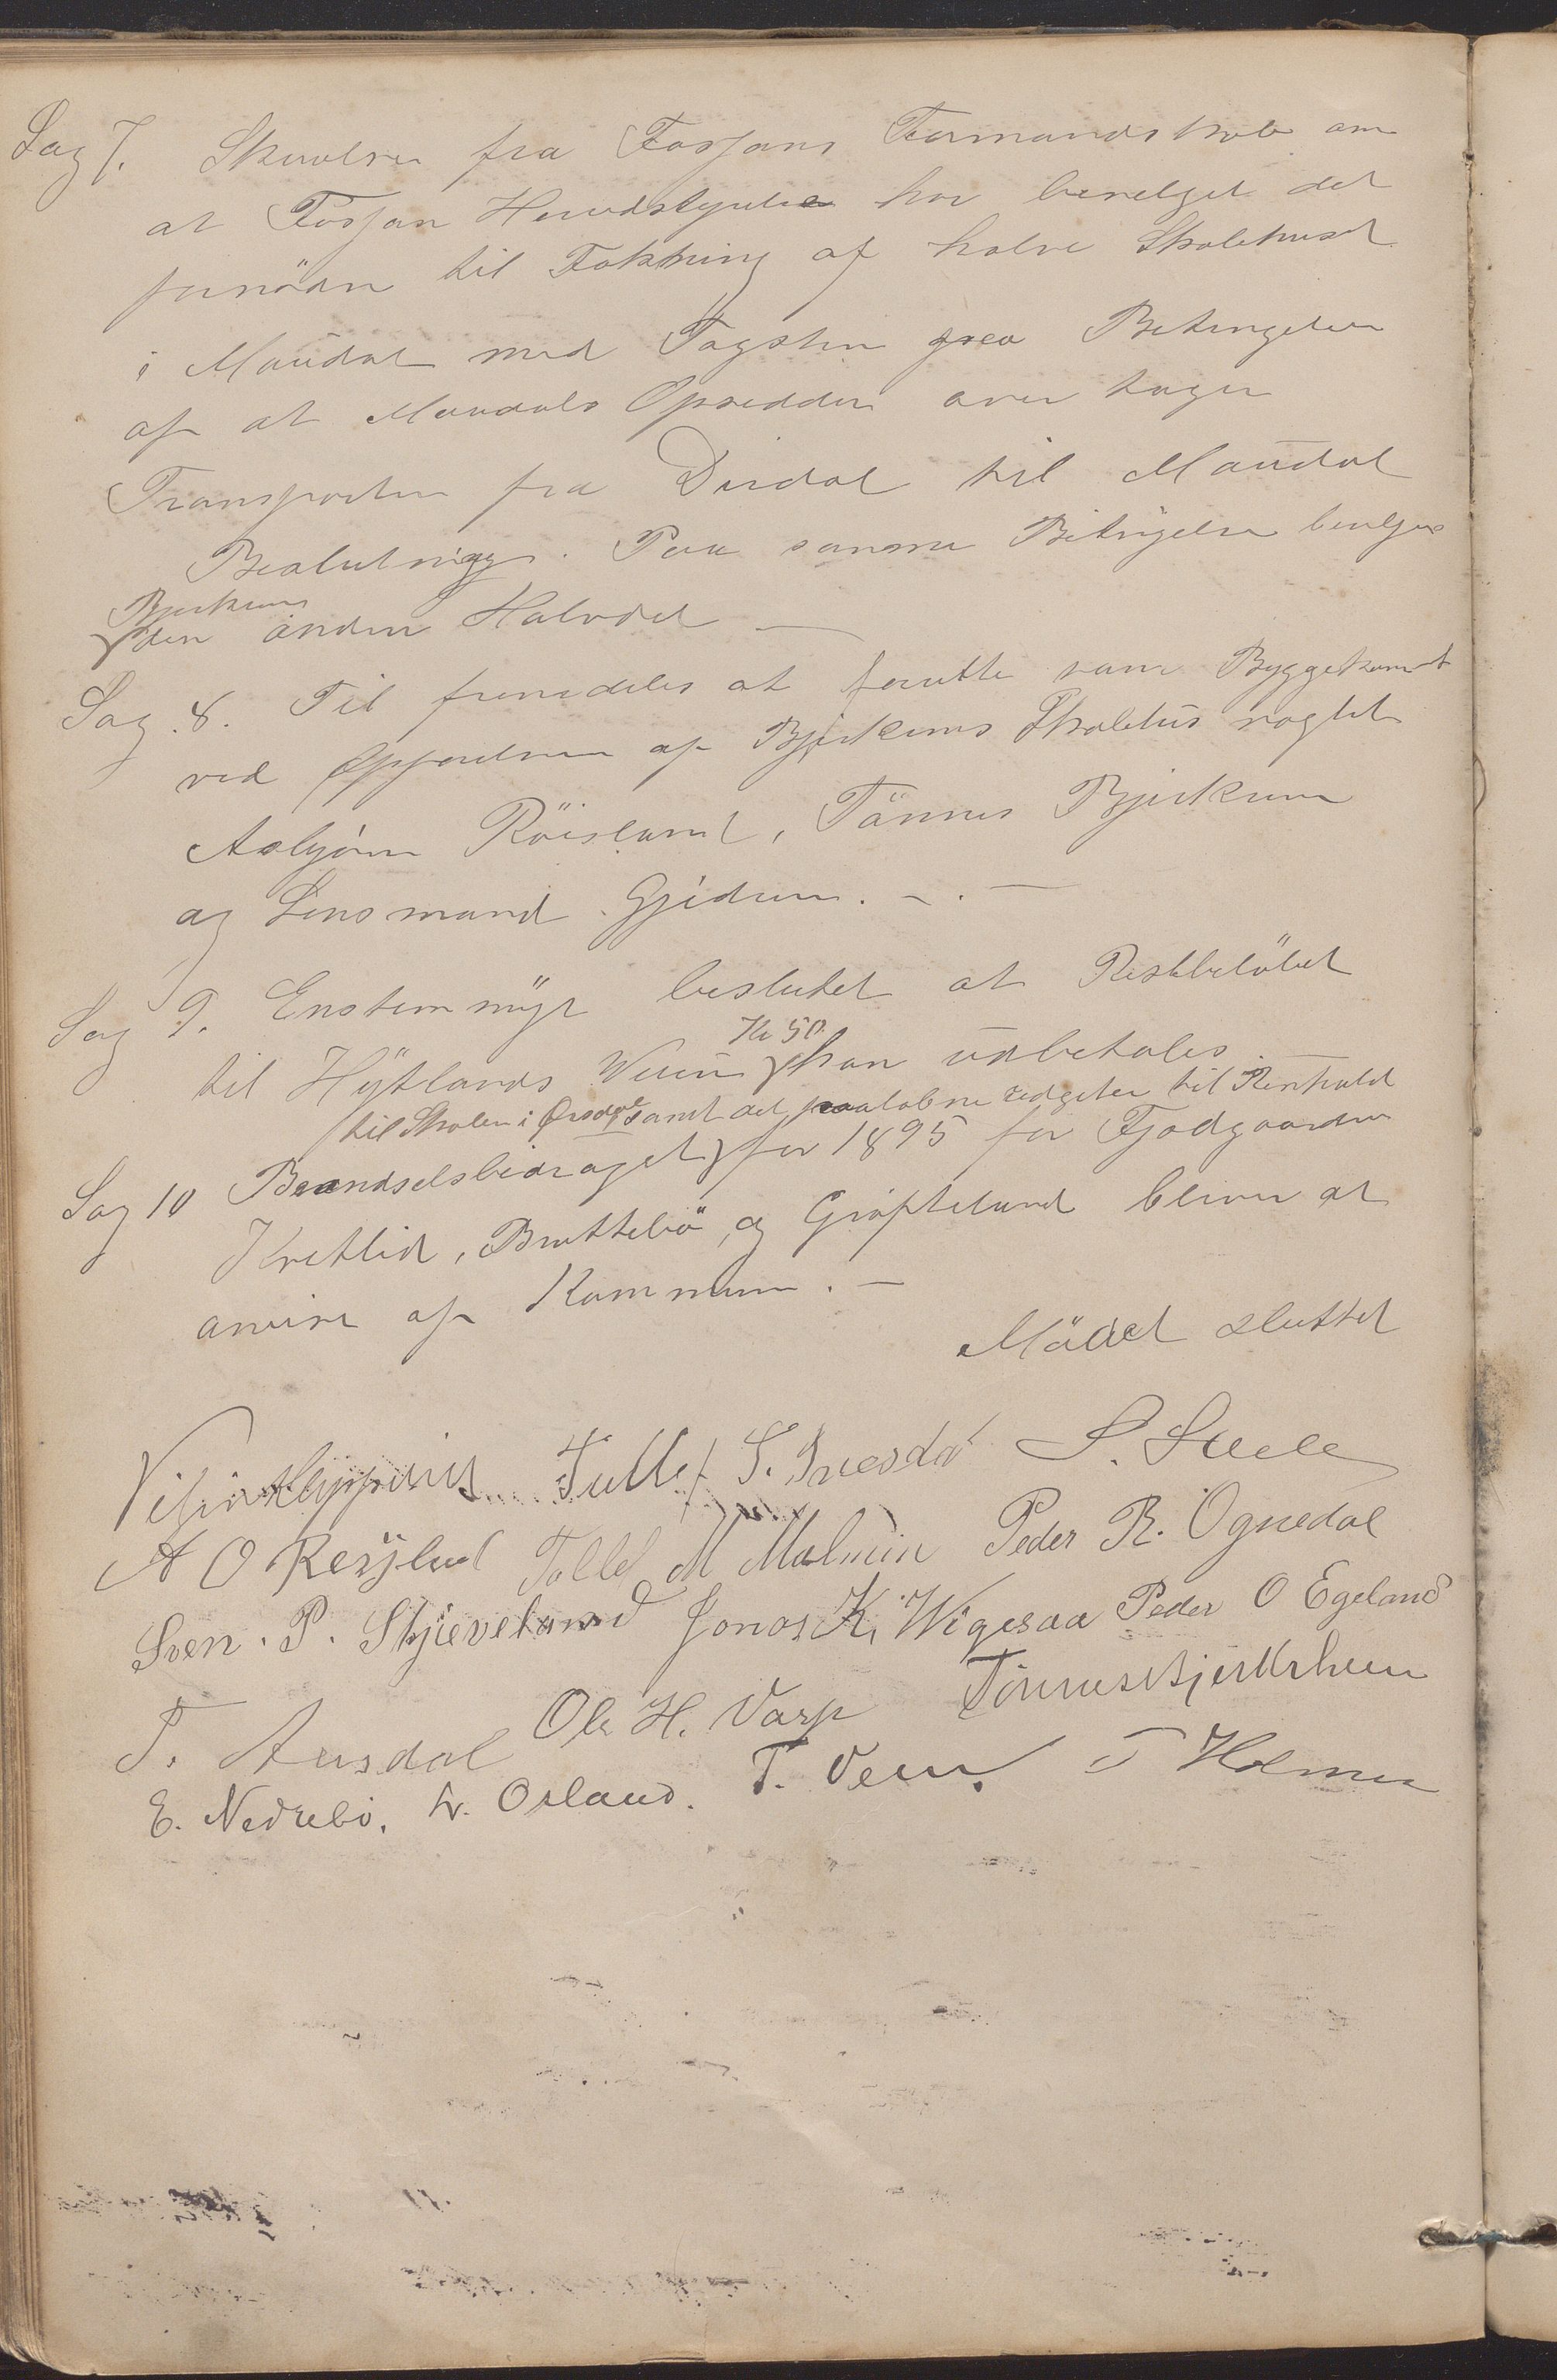 Sag 7. Skrivelse fra Fossans Formandskab om
at Fossan Herredstyrelse har bevelget det
fornödne til Tækking af halve Skolehuset
i Maudal med Tagsten paa Betingelse
af at Maudals Opsiddere over tager
Transporten fra Dirdal til Maudal
Beslutning. Paa samme Betingelse bevilges
Bjerkreims
den anden Halvdel —
Sag 8. Til fremdeles at forsette som Byggekomit
ved Opförelsen af Bjerkrems Skolehus valgtes
Asbjörn Röisland, Tönnes Bjerkrem
og Lensmand Gjedrem. —
Sag 9. Enstemmigt besluttet at Restbelöbet
Kr 50
til Hytlands Veien kan udbetales.
til Skolen i Örsdal samt det paalöbne udgifter til Renhold
Sag 10 Brændselsbidraget for 1895 for Fjodgaarden
Kvitlid, Brattebö og Gröfteland bliver at
anvise af Kommunen. —
Mödet sluttet
Tollef S. Ivesdal
A O Tollef M Malmin Peder R. Ognedal
Sven. P. Skjæveland Jonas K. Wigesaa Peder O Egeland
T. Ausdal Ole H. Varp Tönnes Bjerkrheim
E. Nedrebö. Osland. T. Veen. T Holmen